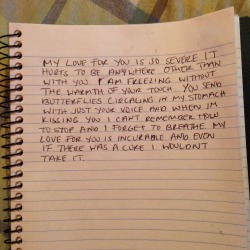 MY LOVE FOR YOU IS SO SEVERE IT
HURTS TO BE ANYWHERE OTHER THAN
WITH YOU I AM FREEZING WITHOUT
THE WARMTH OF YOUR TOUCH. YOU SEND
BUTTERFLIES CIRCALING IN MY STOMACH
WITH JUST YOUR VOICE AND WHEN IM
KISSING YOU I CAN'T REMEMBER HOW
TO STOP AND I FORGET TO BREATHE. MY
LOVE FOR YOU IS INCURABLE AND EVEN
IF THERE WAS A CURE I WOULDN'T
TAKE IT.